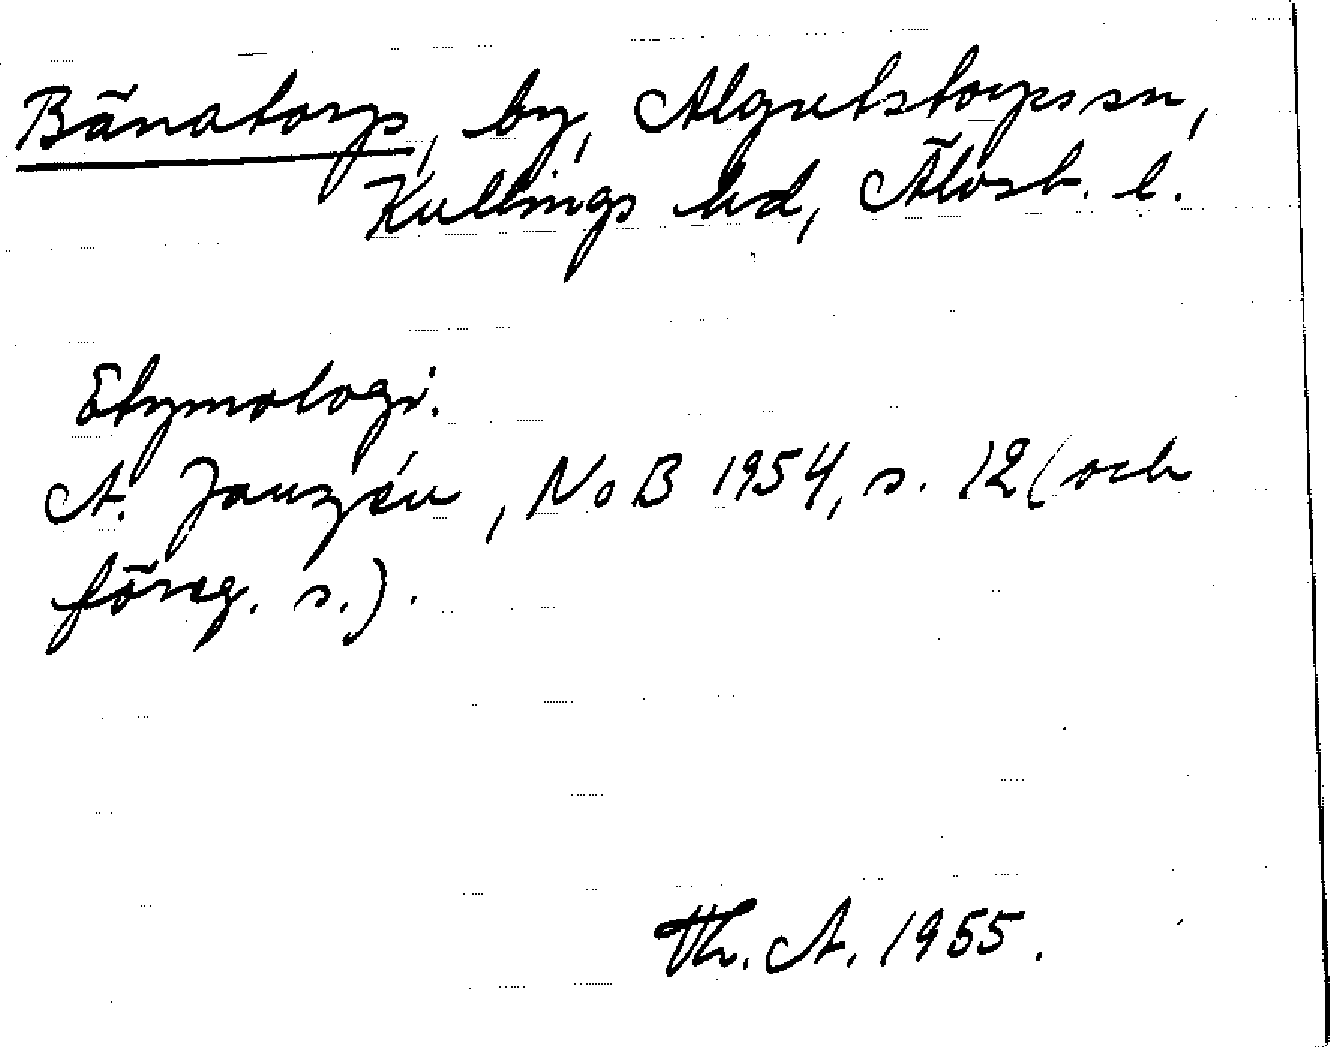 Bänatorp, by, Algutstorps sn,
Kullings hd, Älvsb. l.
Etymologi.
A. Janzén, NoB 1954, s. 12 (och
föreg. s.).
Th. A. 1955.